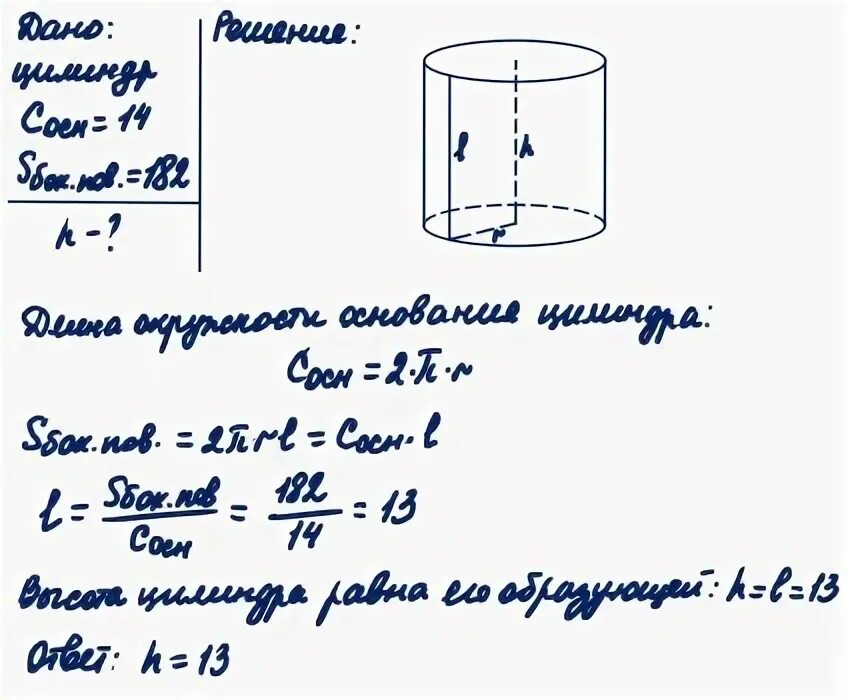 Дано:
цилиндр
Cосн = 14
Sбок.пов. = 182
h - ?
Решение:
l
h
r
Длина окружности основания цилиндра:
Cосн = 2·π·r
Sбок.пов. = 2πrl = Cосн·l
l = Sбок.пов / Cосн = 182 / 14 = 13
Высота цилиндра равна его образующей: h = l = 13
Ответ: h = 13